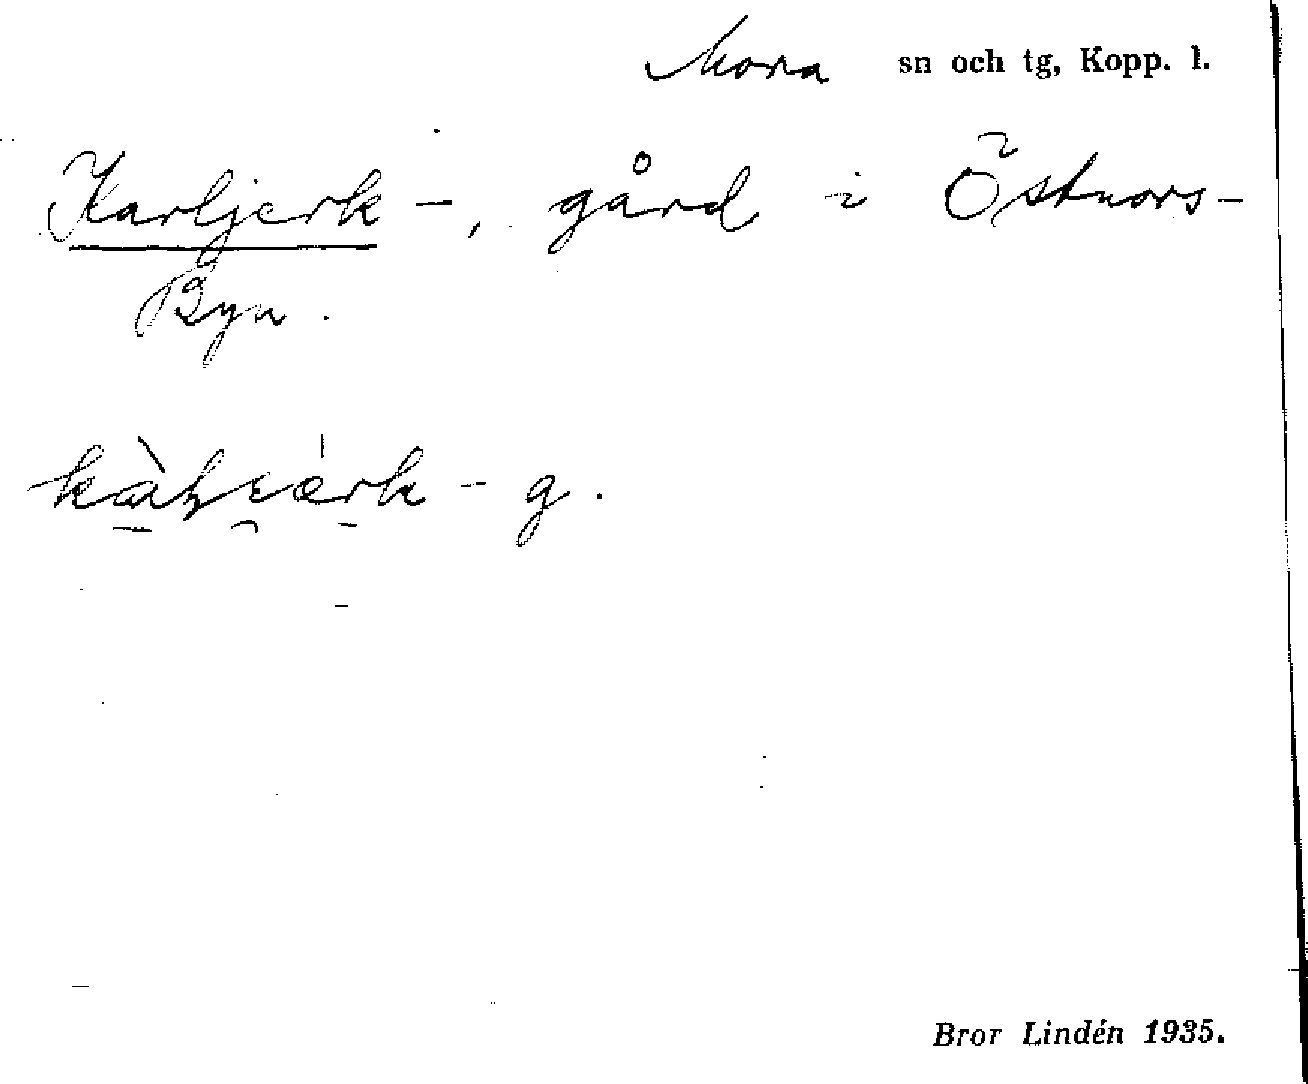 Mora sn och tg, Kopp. l.
Karljerk-, gård i Östnors-
Byn.
- g.
Bror Lindén 1935.